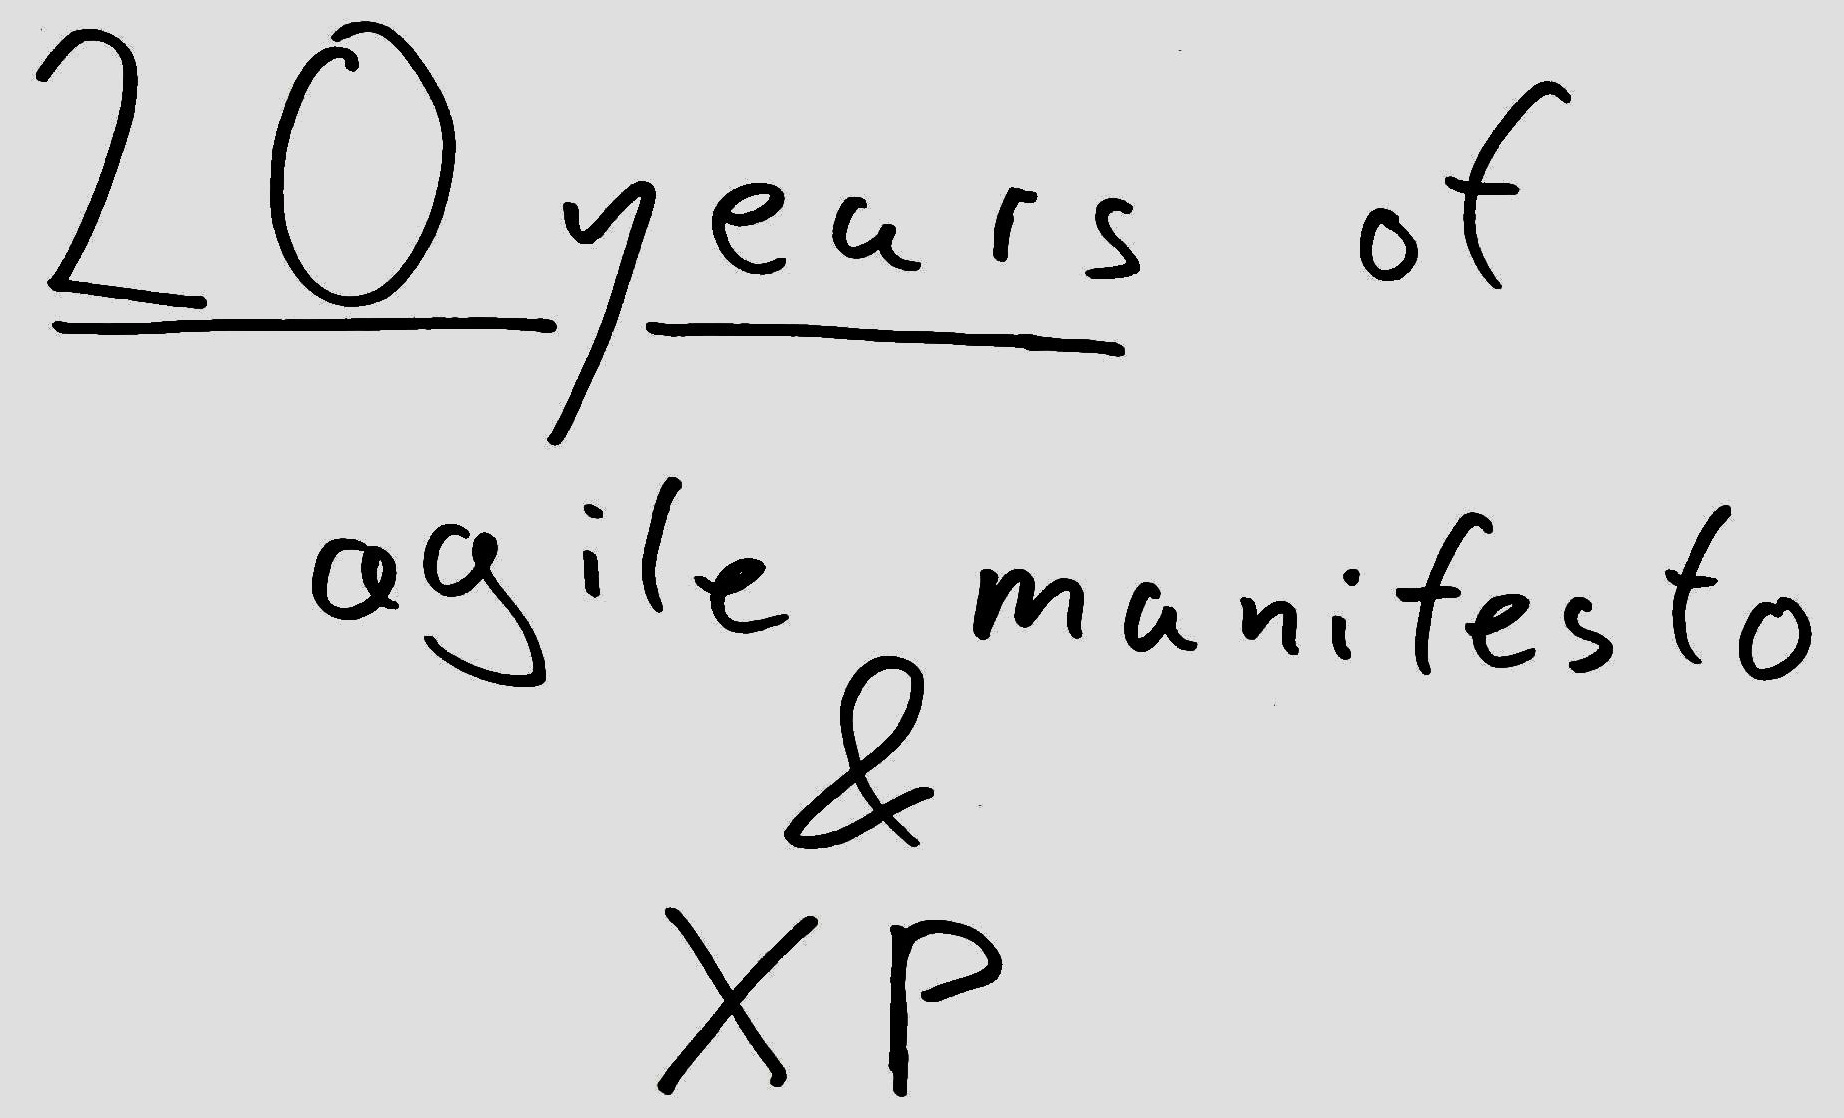 20 years of
agile manifesto
&
XP